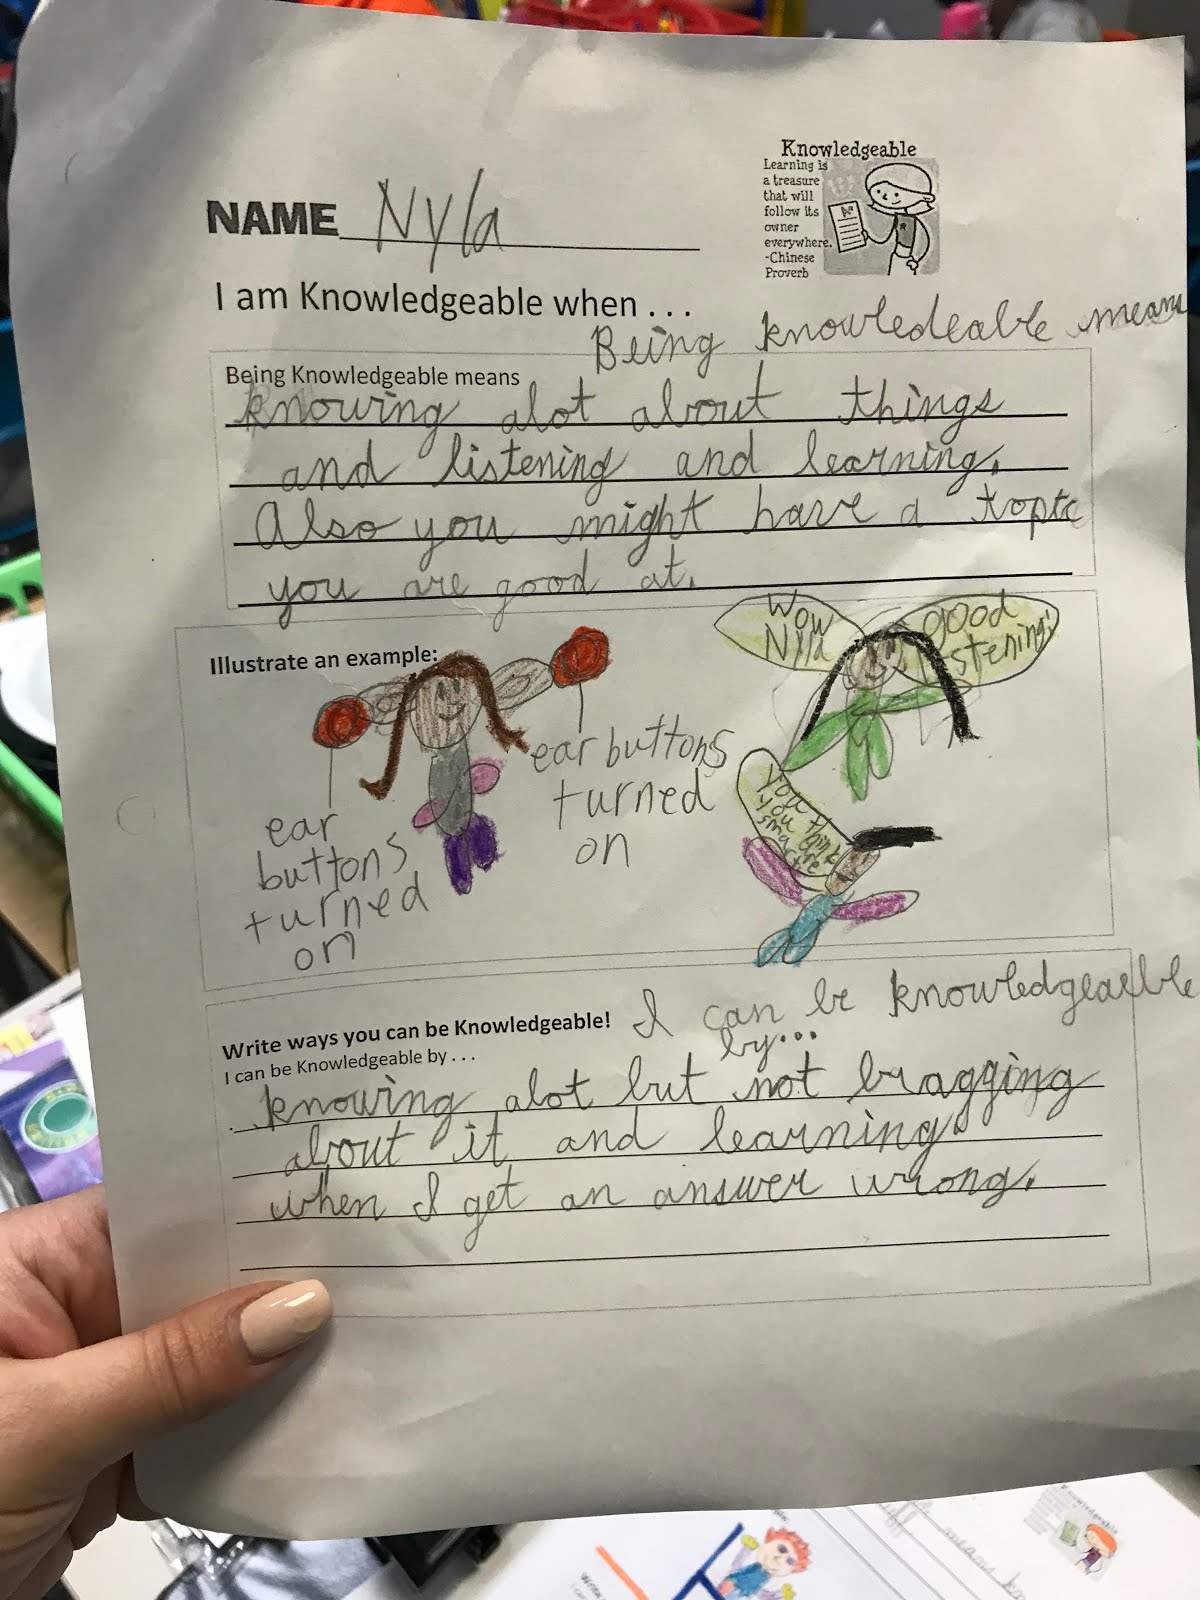 Knowledgeable
Learning is
a treasure
that will
follow its
owner
everywhere.
-Chinese
Proverb
NAME Nyla
I am Knowledgeable when . . .
Being knowledeable means
Being Knowledgeable means
knowing alot about things
and listening and learning.
Also you might have a topic
you are good at.
Illustrate an example:
ear buttons
turned
on
ear
buttons
turned
on
Wow
Nyla
good
listening!
you
you think
smart
I can be knowledgeable
by...
Write ways you can be Knowledgeable!
I can be Knowledgeable by . . .
knowing alot but not bragging
about it and learning
when I get an answer wrong.